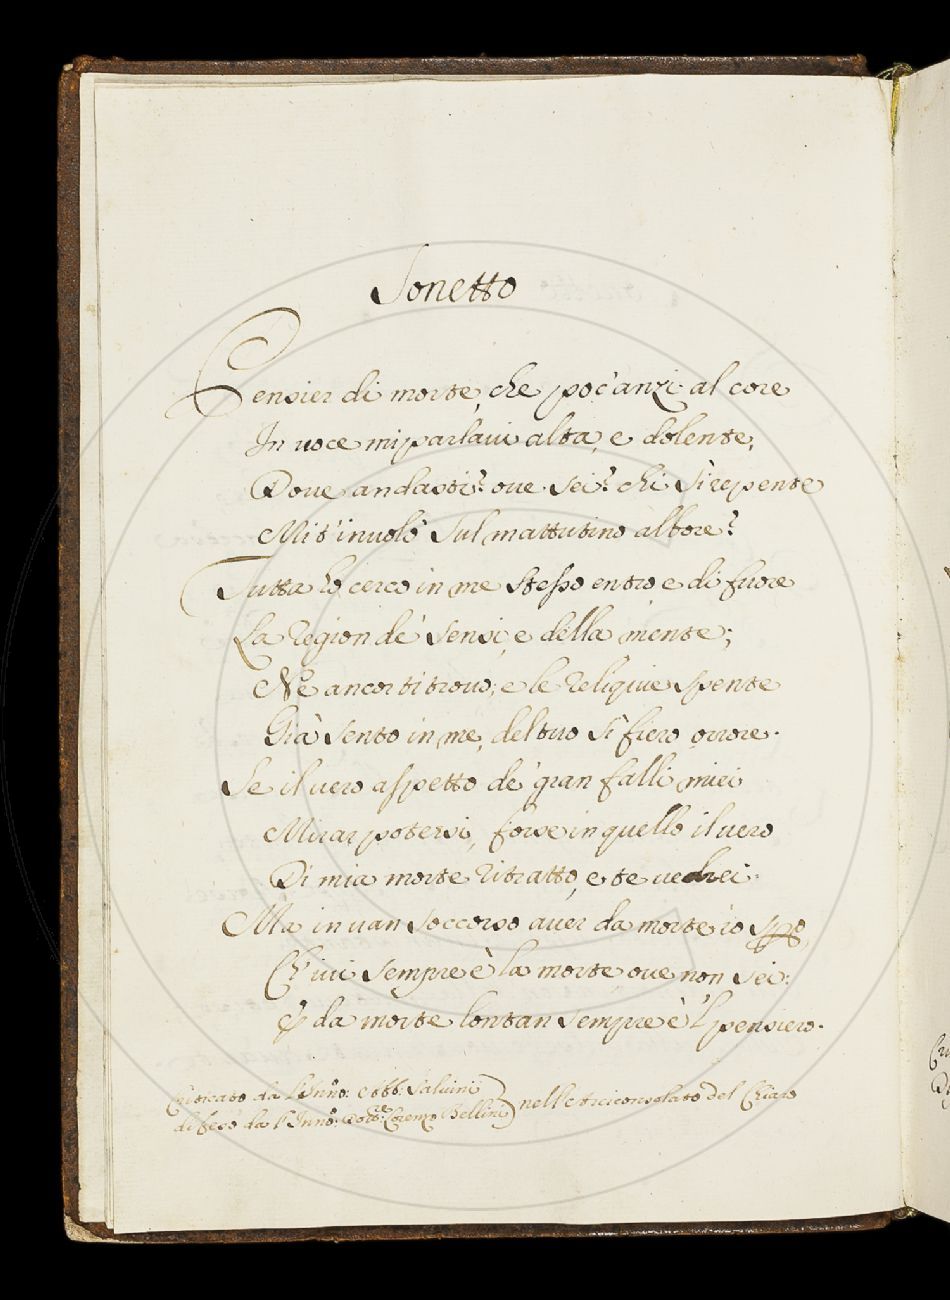 Sonetto
Pensier di morte, che poc'anzi al core
In uoce mi parlaui alta, e dolente,
Doue andasti? oue sei? chi sì repente
Mi t'inuolò sul mattutino albore?
Tutta Io cerco in me stesso entro e di fuore
La region de' sensi, e della mente;
Nè ancor ti trouo; e le reliquie spente
Già sento in me, del tuo sì fiero orrore.
Se il uero aspetto de' gran falli miei
Mirar potessi, forse in quello il uero
Di mia morte ritratto, e te uedrei.
Ma in uan soccorso auer da morte io spero,
Ch'iui sempre è la morte, oue non sei:
E da morte lontan sempre è 'l pensiero.
Criticato da l'Inno: e bbb: Saluini
difeso da l'Inno: Dottre Lorenzo Bellini nell'Arciconsolato del Chiaro